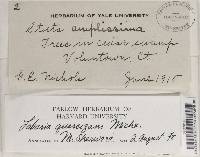 HERBARIUM OF YALE UNIVERSITY
Sticta amplissima
Trees in cedar swamp
Voluntown Ct.
G. E. Nichols June 1915
FARLOW HERBARIUM OF
HARVARD UNIVERSITY
Lobaria quercizans Michx.
M. Sherwood 2 August 80